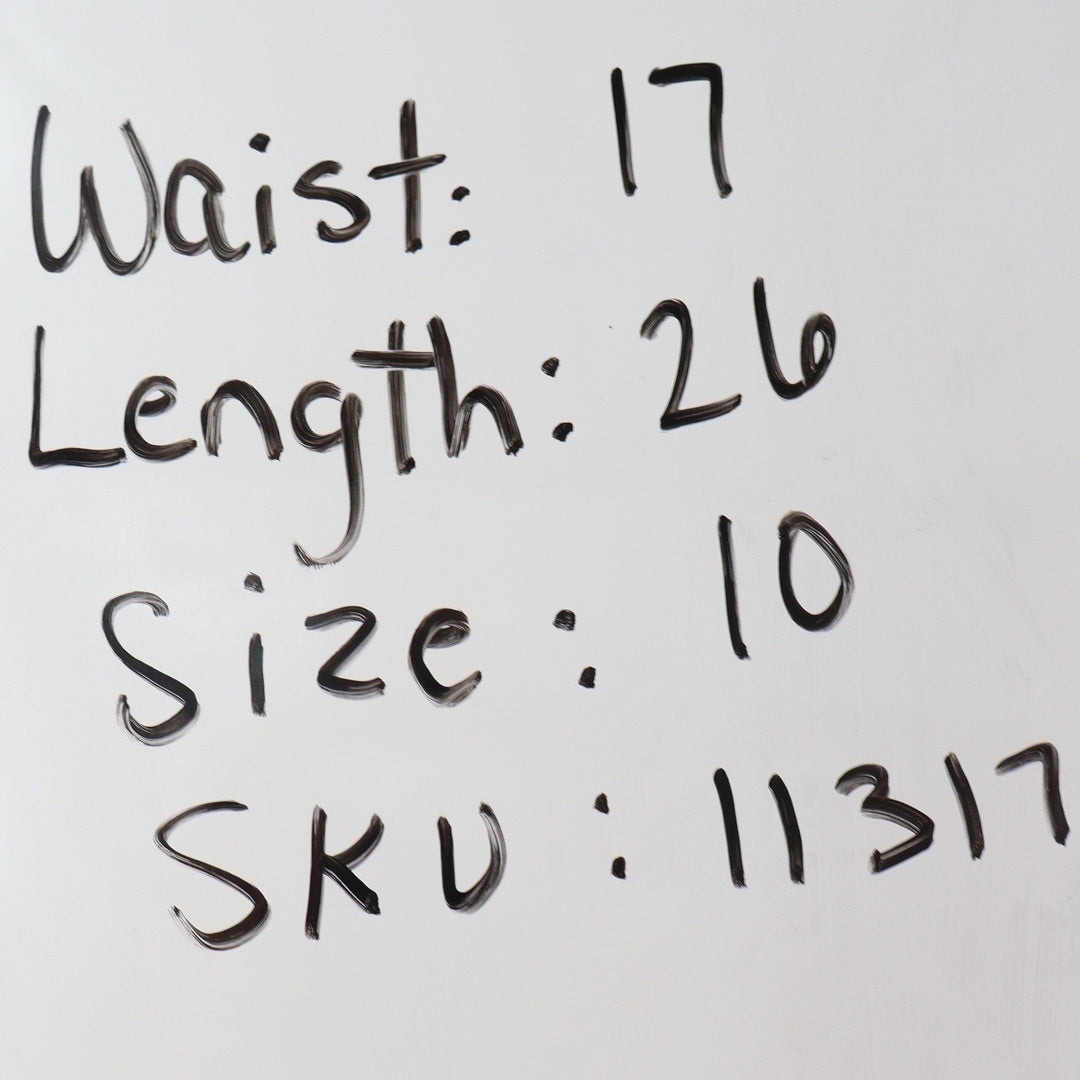 Waist: 17
Length: 26
Size: 10
SKU: 11317